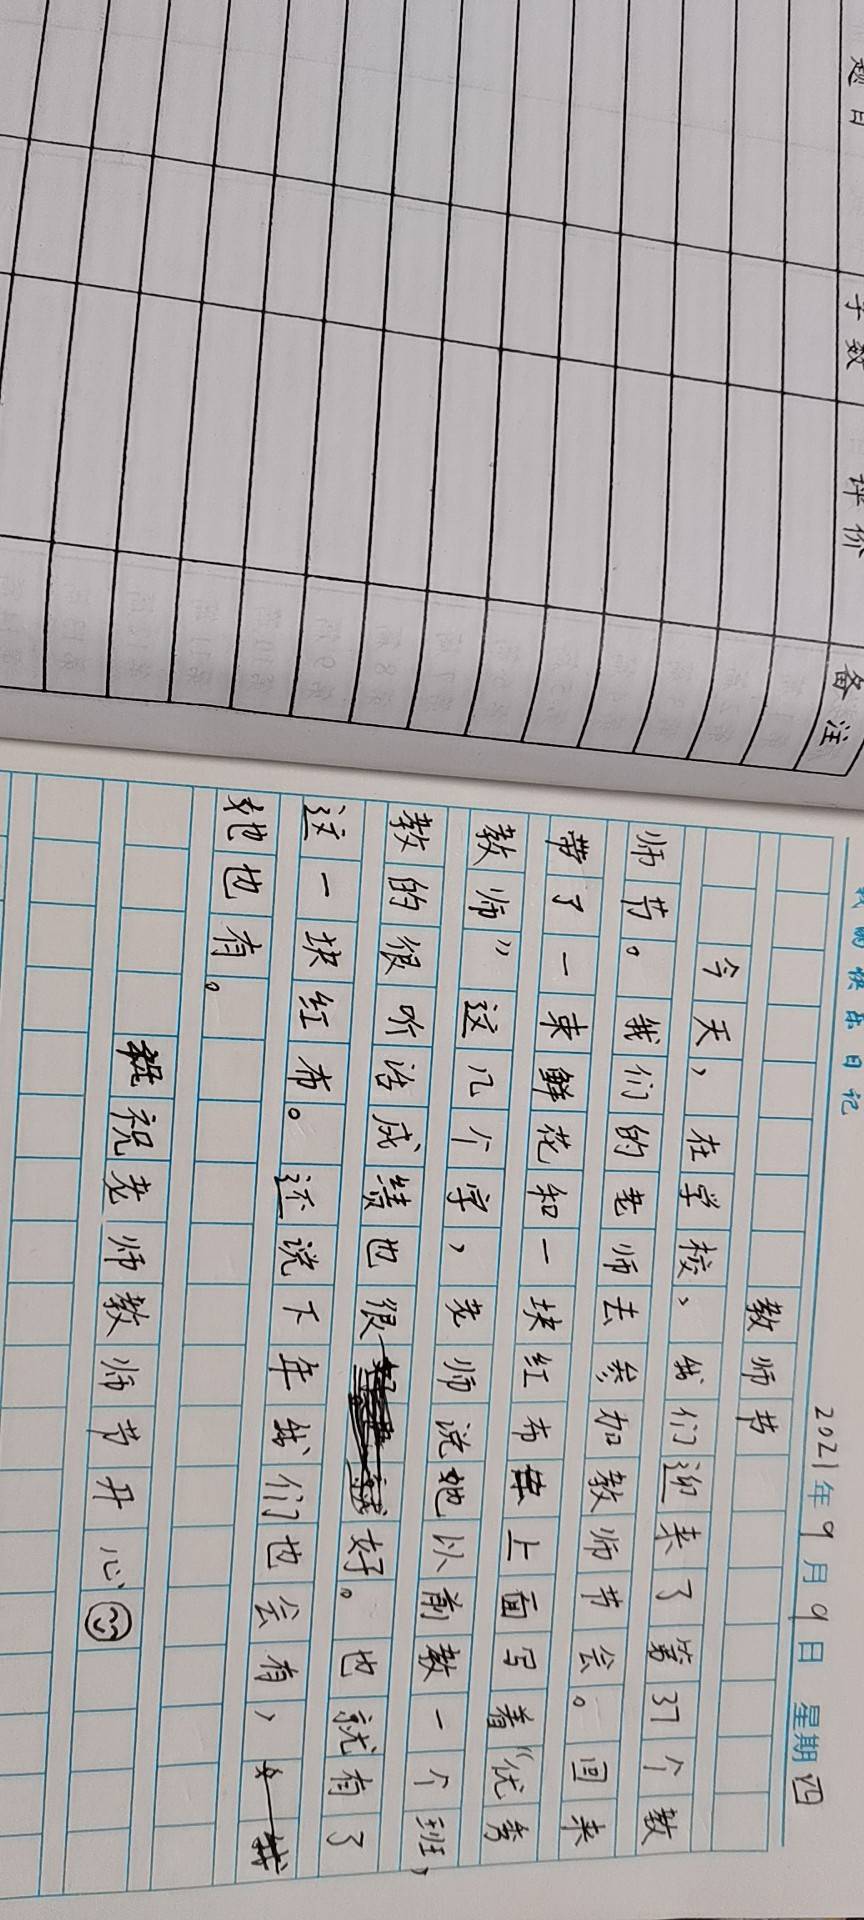 题目 字数 评价 备注
我的快乐日记
2021年9月9日 星期四
教师节
今天，在学校，我们迎来了第37个教
师节。我们的老师去参加教师节会。回来
带了一束鲜花和一块红布上面写着“优秀
教师”这几个字，老师说她以前教一个班，
教的很听话成绩也很好。也就有了
这一块红布。还说下年我们也会有，
她也有。
祝老师教师节开心